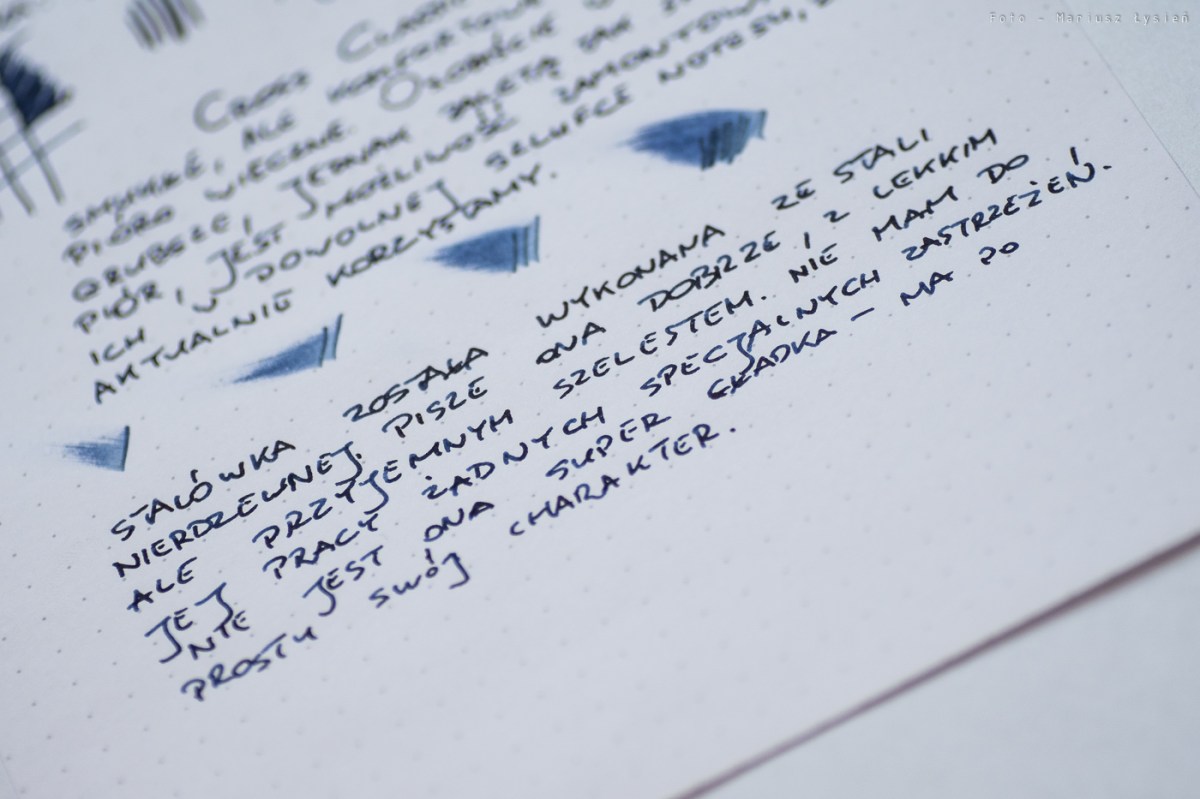 Foto - Mariusz Łysień
CROSS
SMUKŁE, ALE KOMFORTOWE
PIÓRO WIECZNE. OSOBIŚCIE
GRUBSZE, JEDNAK ZALETĄ TAK
PIÓR, JEST MOŻLIWOŚĆ
ICH W DOWOLNEJ SZLUFCE NOTESU, Z
AKTUALNIE KORZYSTAMY.
STALÓWKA ZOSTAŁA WYKONANA ZE STALI
NIERDZEWNEJ. PISZE ONA DOBRZE I Z LEKKIM
ALE PRZYJEMNYM SZELESTEM. NIE MAM DO
JEJ PRACY ŻADNYCH SPECJALNYCH ZASTRZEŻEŃ.
NIE JEST ONA SUPER GŁADKA – MA PO
PROSTU SWÓJ CHARAKTER.